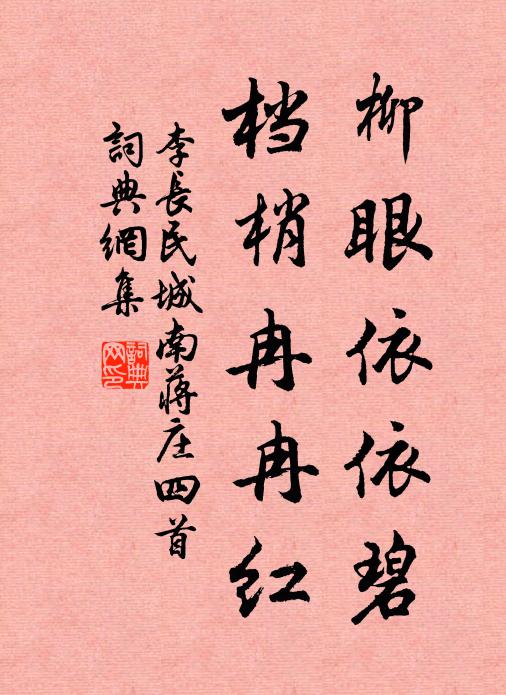 柳眼依依碧
档梢冉冉红
李長民城南蔣庄四首
詞典網集
詞典网印